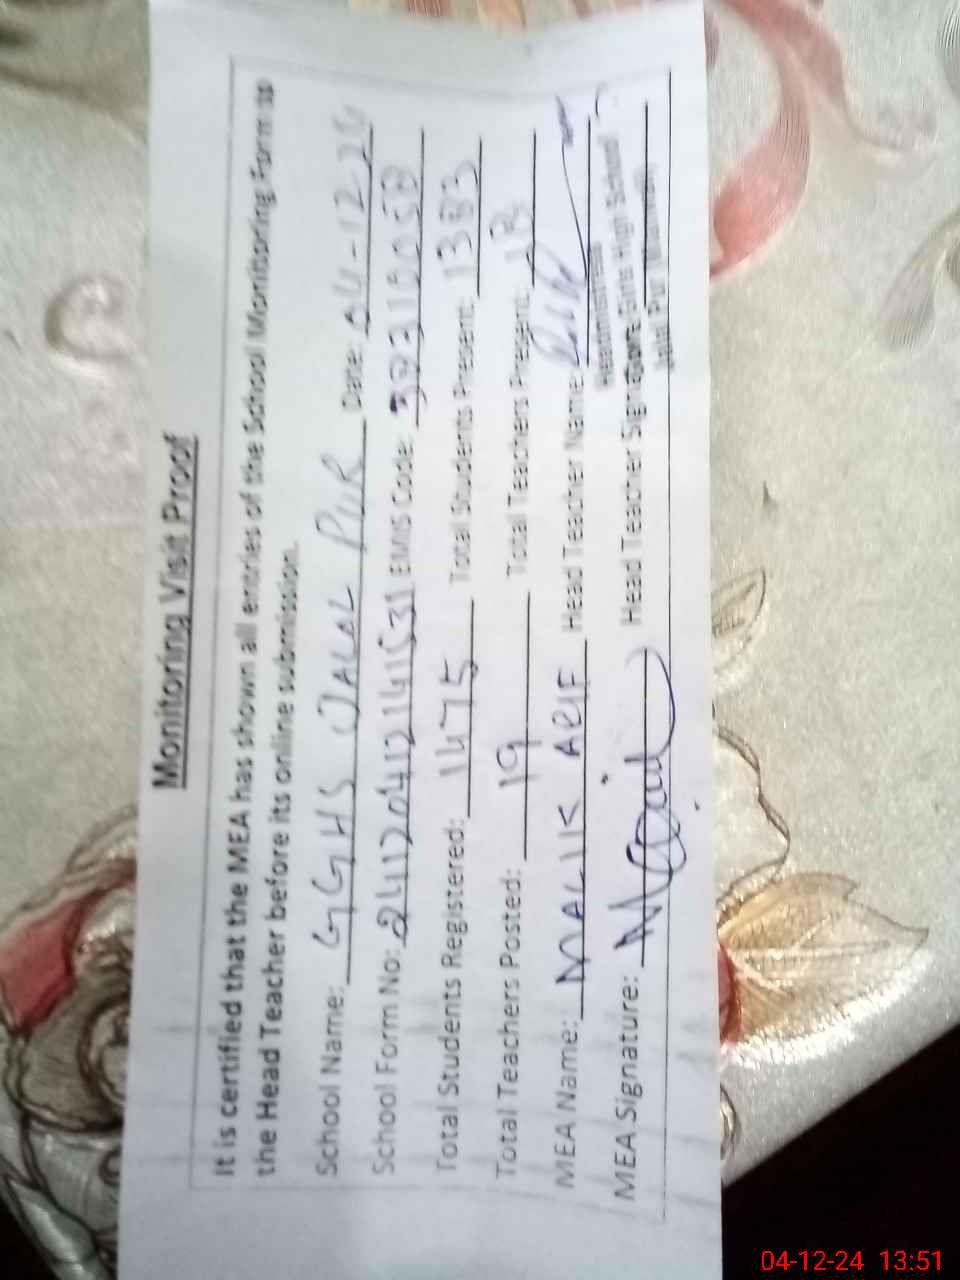 Monitoring Visit Proof
It is certified that the MEA has shown all entries of the School Monitoring Form as
the Head Teacher before its online submission.
School Name: GGHS JALAL PUR Date: 04-12-24
School Form No: 24120412141531 EMIS Code:
Total Students Registered: 1475 Total Students Present: 1383
Total Teachers Posted: 19 Total Teachers Present: 18
MEA Name: MALIK ARIF Head Teacher Name:
Headmistress
MEA Signature: Head Teacher Signa
Govt. Girls High School
Jalal Pur
04-12-24 13:51